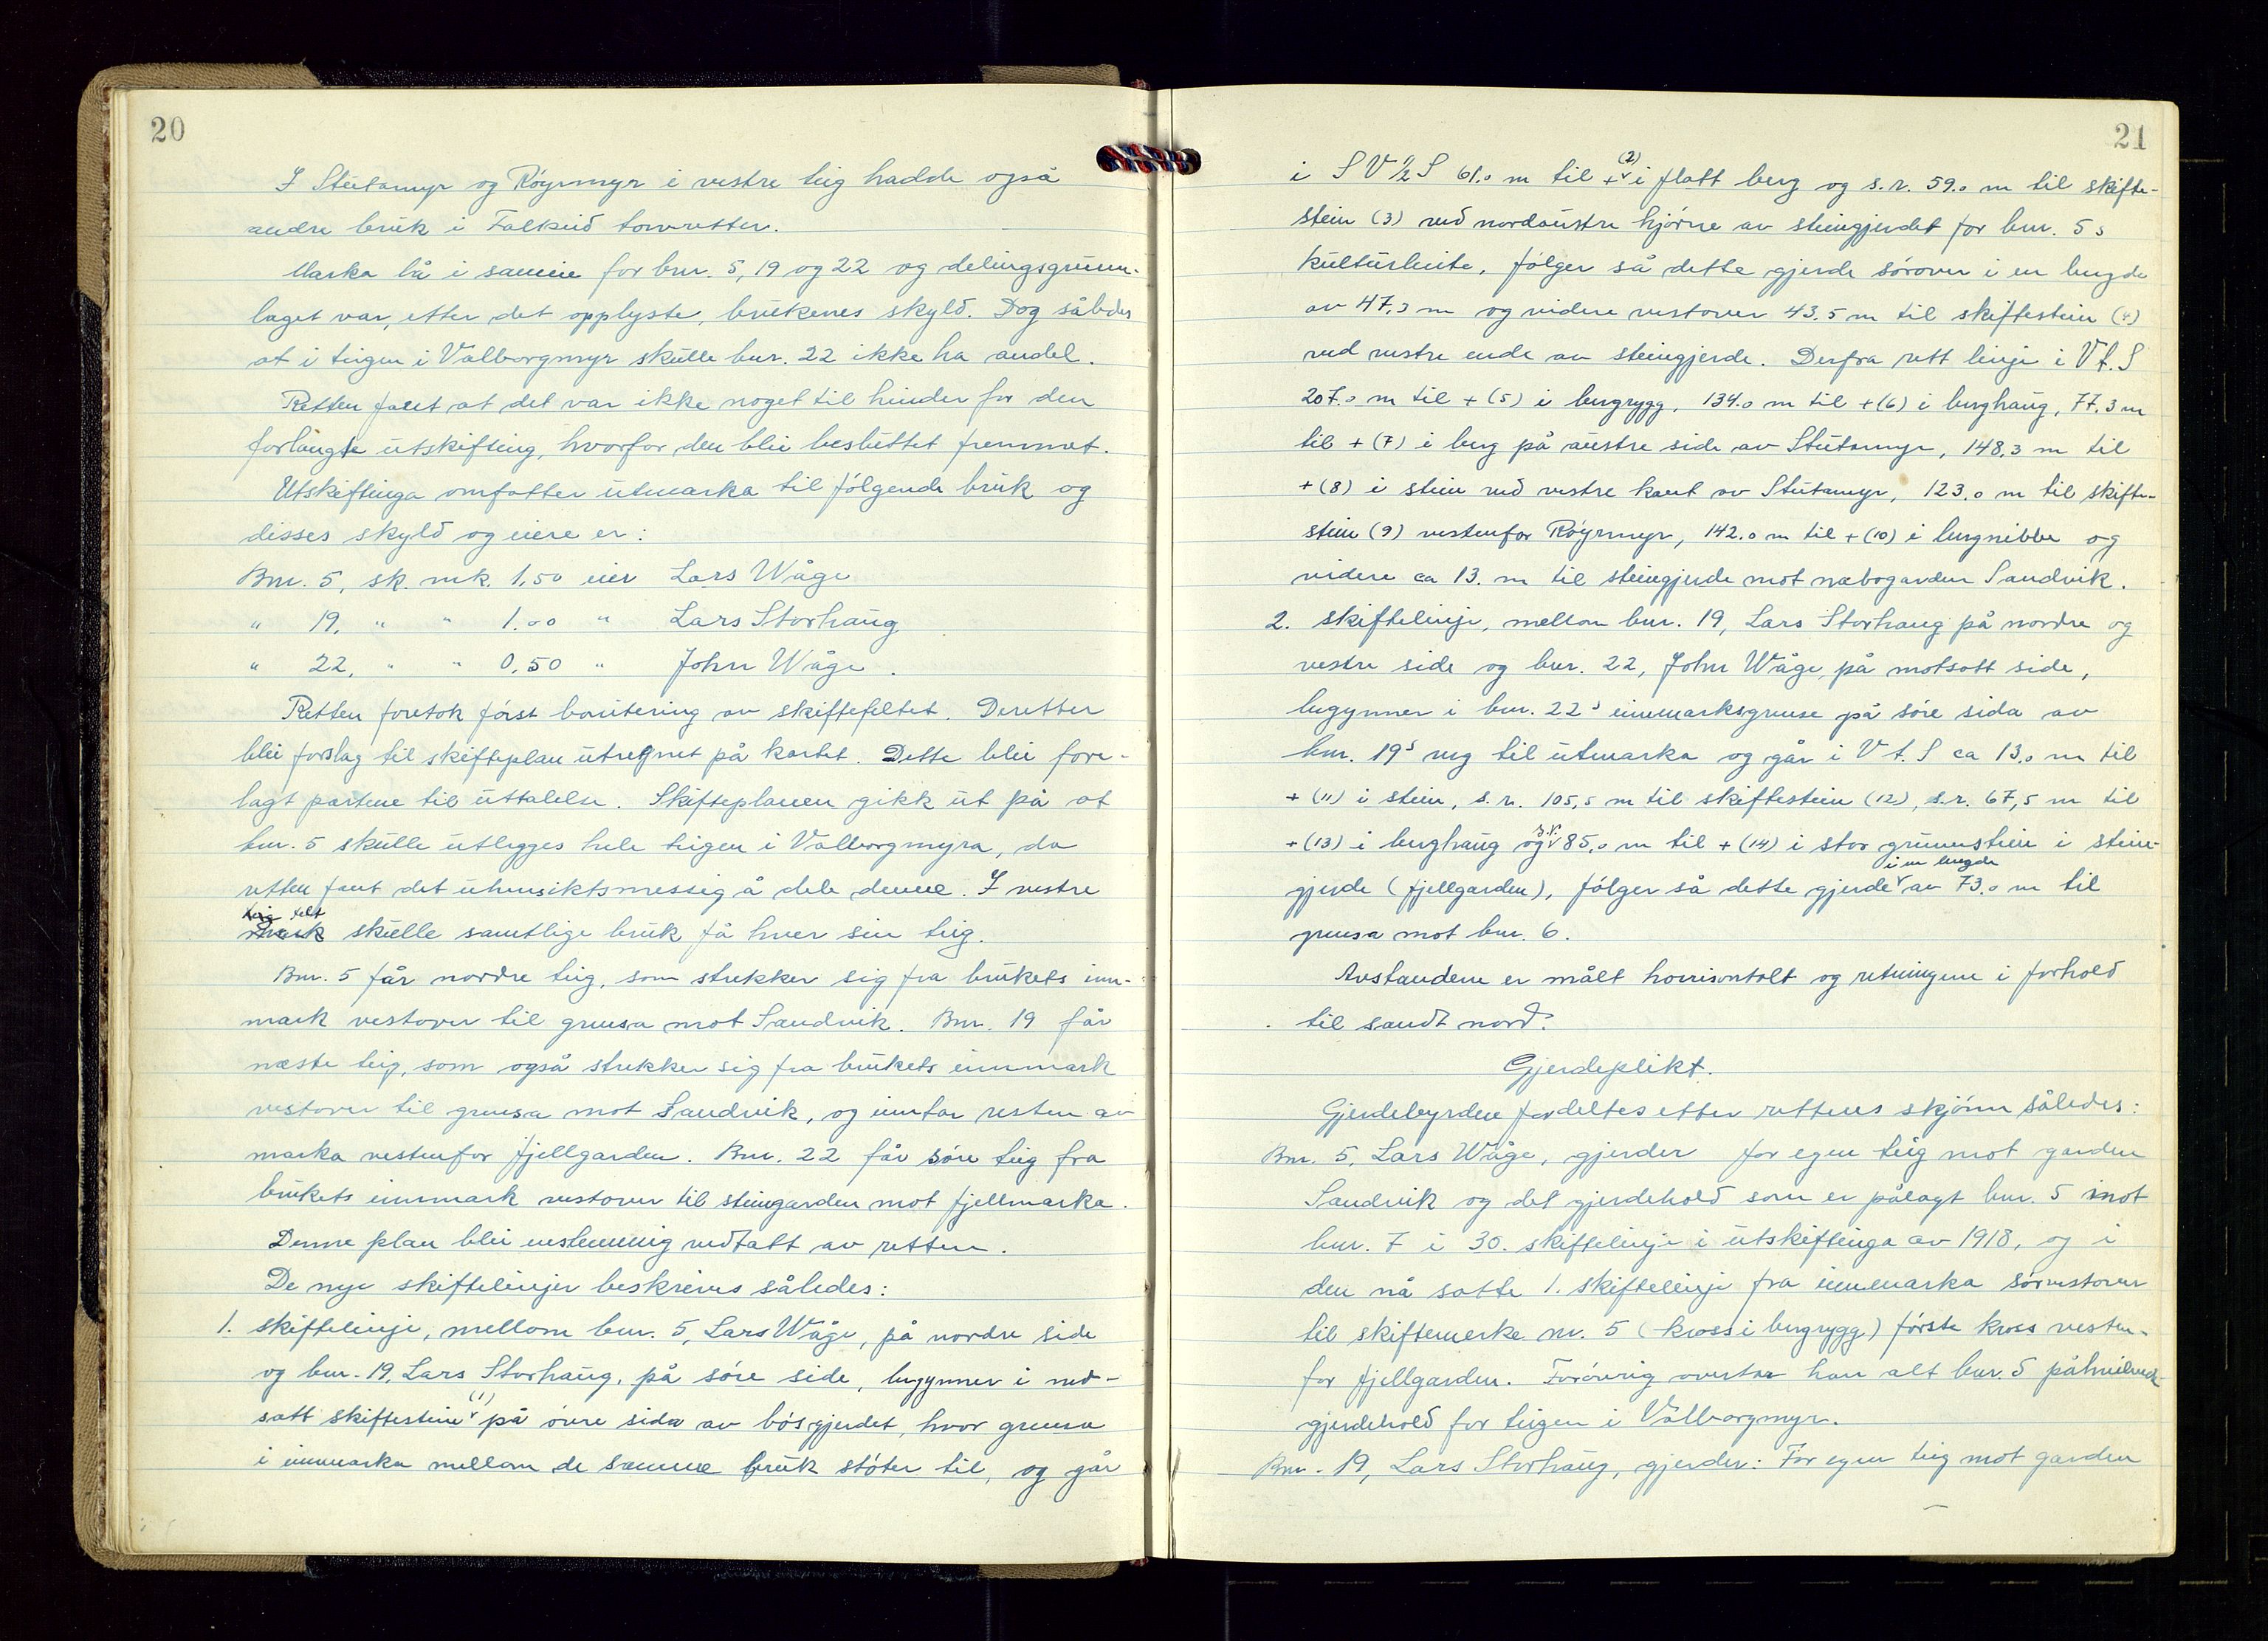 20
I Stutamyr og Röyrmyr i vestre teig hadde også
andre bruk i Falkeid torvretter.
Marka lå i sameie for bnr. 5, 19 og 22 og delingsgrunn-
laget var, etter det opplyste, brukenes skyld. Dog således
at i teigen i Valborgmyr skulle bnr. 22 ikke ha andel.
Retten fant at det var ikke noget til hinder for den
forlangte utskifting, hvorfor den blei besluttet fremmet.
Utskiftinga omfatter utmarka til følgende bruk og
disses skyld og eiere er:
Bnr. 5, sk. mk. 1,50 eier Lars Wåge
" 19, " " 1.00 " Lars Storhaug
" 22, " " 0,50 " John Wåge.
Retten foretok först bonitering av skiftefeltet. Deretter
blei forslag til skifteplan utregnet på kartet. Dette blei fore-
lagt partene til uttalelse. Skifteplanen gikk ut på at
bnr. 5 skulle utlegges hele teigen i Valborgmyra, da
retten fant det uhensiktsmessig å dele denne. I vestre
teigfelt
mark skulle samtlige bruk få hver sin teig.
Bnr. 5 får nordre teig, som strekker sig fra brukets inn-
mark vestover til grensa mot Sandvik. Bnr. 19 får
næste teig, som også strekker sig fra brukets innmark
vestover til grensa mot Sandvik, og inntar resten av
marka vestenfor fjellgarden. Bnr. 22 får söre teig fra
brukets innmark vestover til steingarden mot fjellmarka.
Denne plan blei enstemmig vedtatt av retten.
De nye skiftelinjer beskrives således:
1. skiftelinje, mellom bnr. 5, Lars Wåge, på nordre side
og bnr. 19, Lars Storhaug, på söre side, begynner i ned-
satt skiftestein (1) på övre sida av bösgjerdet, hvor grensa
i innmarka mellom de samme bruk stöter til, og går
21
i S V ½ S 61.0 m til + (2) i flatt berg og s.r. 59.0 m til skifte-
stein (3) ved nordaustre hjörne av steingjerdet for bnr. 5 s
kulturbeite, fölger så dette gjerde sörover i en lengde
av 47,3 m og videre vestover 43.5 m til skiftestein (4)
ved vestre ende av steingjerde. Derfra rett linje i V t. S
207.0 m til + (5) i bergrygg, 134.0 m til + (6) i berghaug, 77,3 m
til + (7) i berg på austre side av Stutamyr, 148,3 m til
+ (8) i stein ved vestre kant av Stutamyr, 123.0 m til skifte-
stein (9) vestenfor Röyrmyr, 142.0 m til + (10) i bergnibbe og
videre ca 13. m til steingjerde mot nabogarden Sandvik.
2. skiftelinje, mellom bnr. 19, Lars Storhaug på nordre og
vestre side og bnr. 22, John Wåge, på motsatt side,
begynner i bnr. 22 s innmarksgrense på söre sida av
bnr. 19 s veg til utmarka og går i V t. S ca 13.0 m til
+ (11) i stein, s.r. 105,5 m til skiftestein (12), s.r. 67,5 m til
+ (13) i berghaug og s.r. 85,0 m til + (14) i stor grunnstein i stein-
gjerde (fjellgarden), fölger så dette gjerde i en lengde av 73.0 m til
grensa mot bnr. 6.
Avstandene er målt horrisontalt og retningene i forhold
til sandt nord.
Gjerdeplikt.
Gjerdebyrden fordeltes etter rettens skjönn således:
Bnr. 5, Lars Wåge, gjerder for egen teig mot garden
Sandvik og det gjerdehold som er pålagt bnr. 5 mot
bnr. 7 i 30. skiftelinje i utskiftinga av 1918, og i
den nå satte 1. skiftelinje fra innmarka sörvestover
til skiftemerke nr. 5 (kross i bergrygg) förste kross vesten-
for fjellgarden. Forövrig overtar han alt bnr. 5 påhvilende
gjerdehold for teigen i Valborgmyr.
Bnr. 19, Lars Storhaug, gjerder: For egen teig mot garden